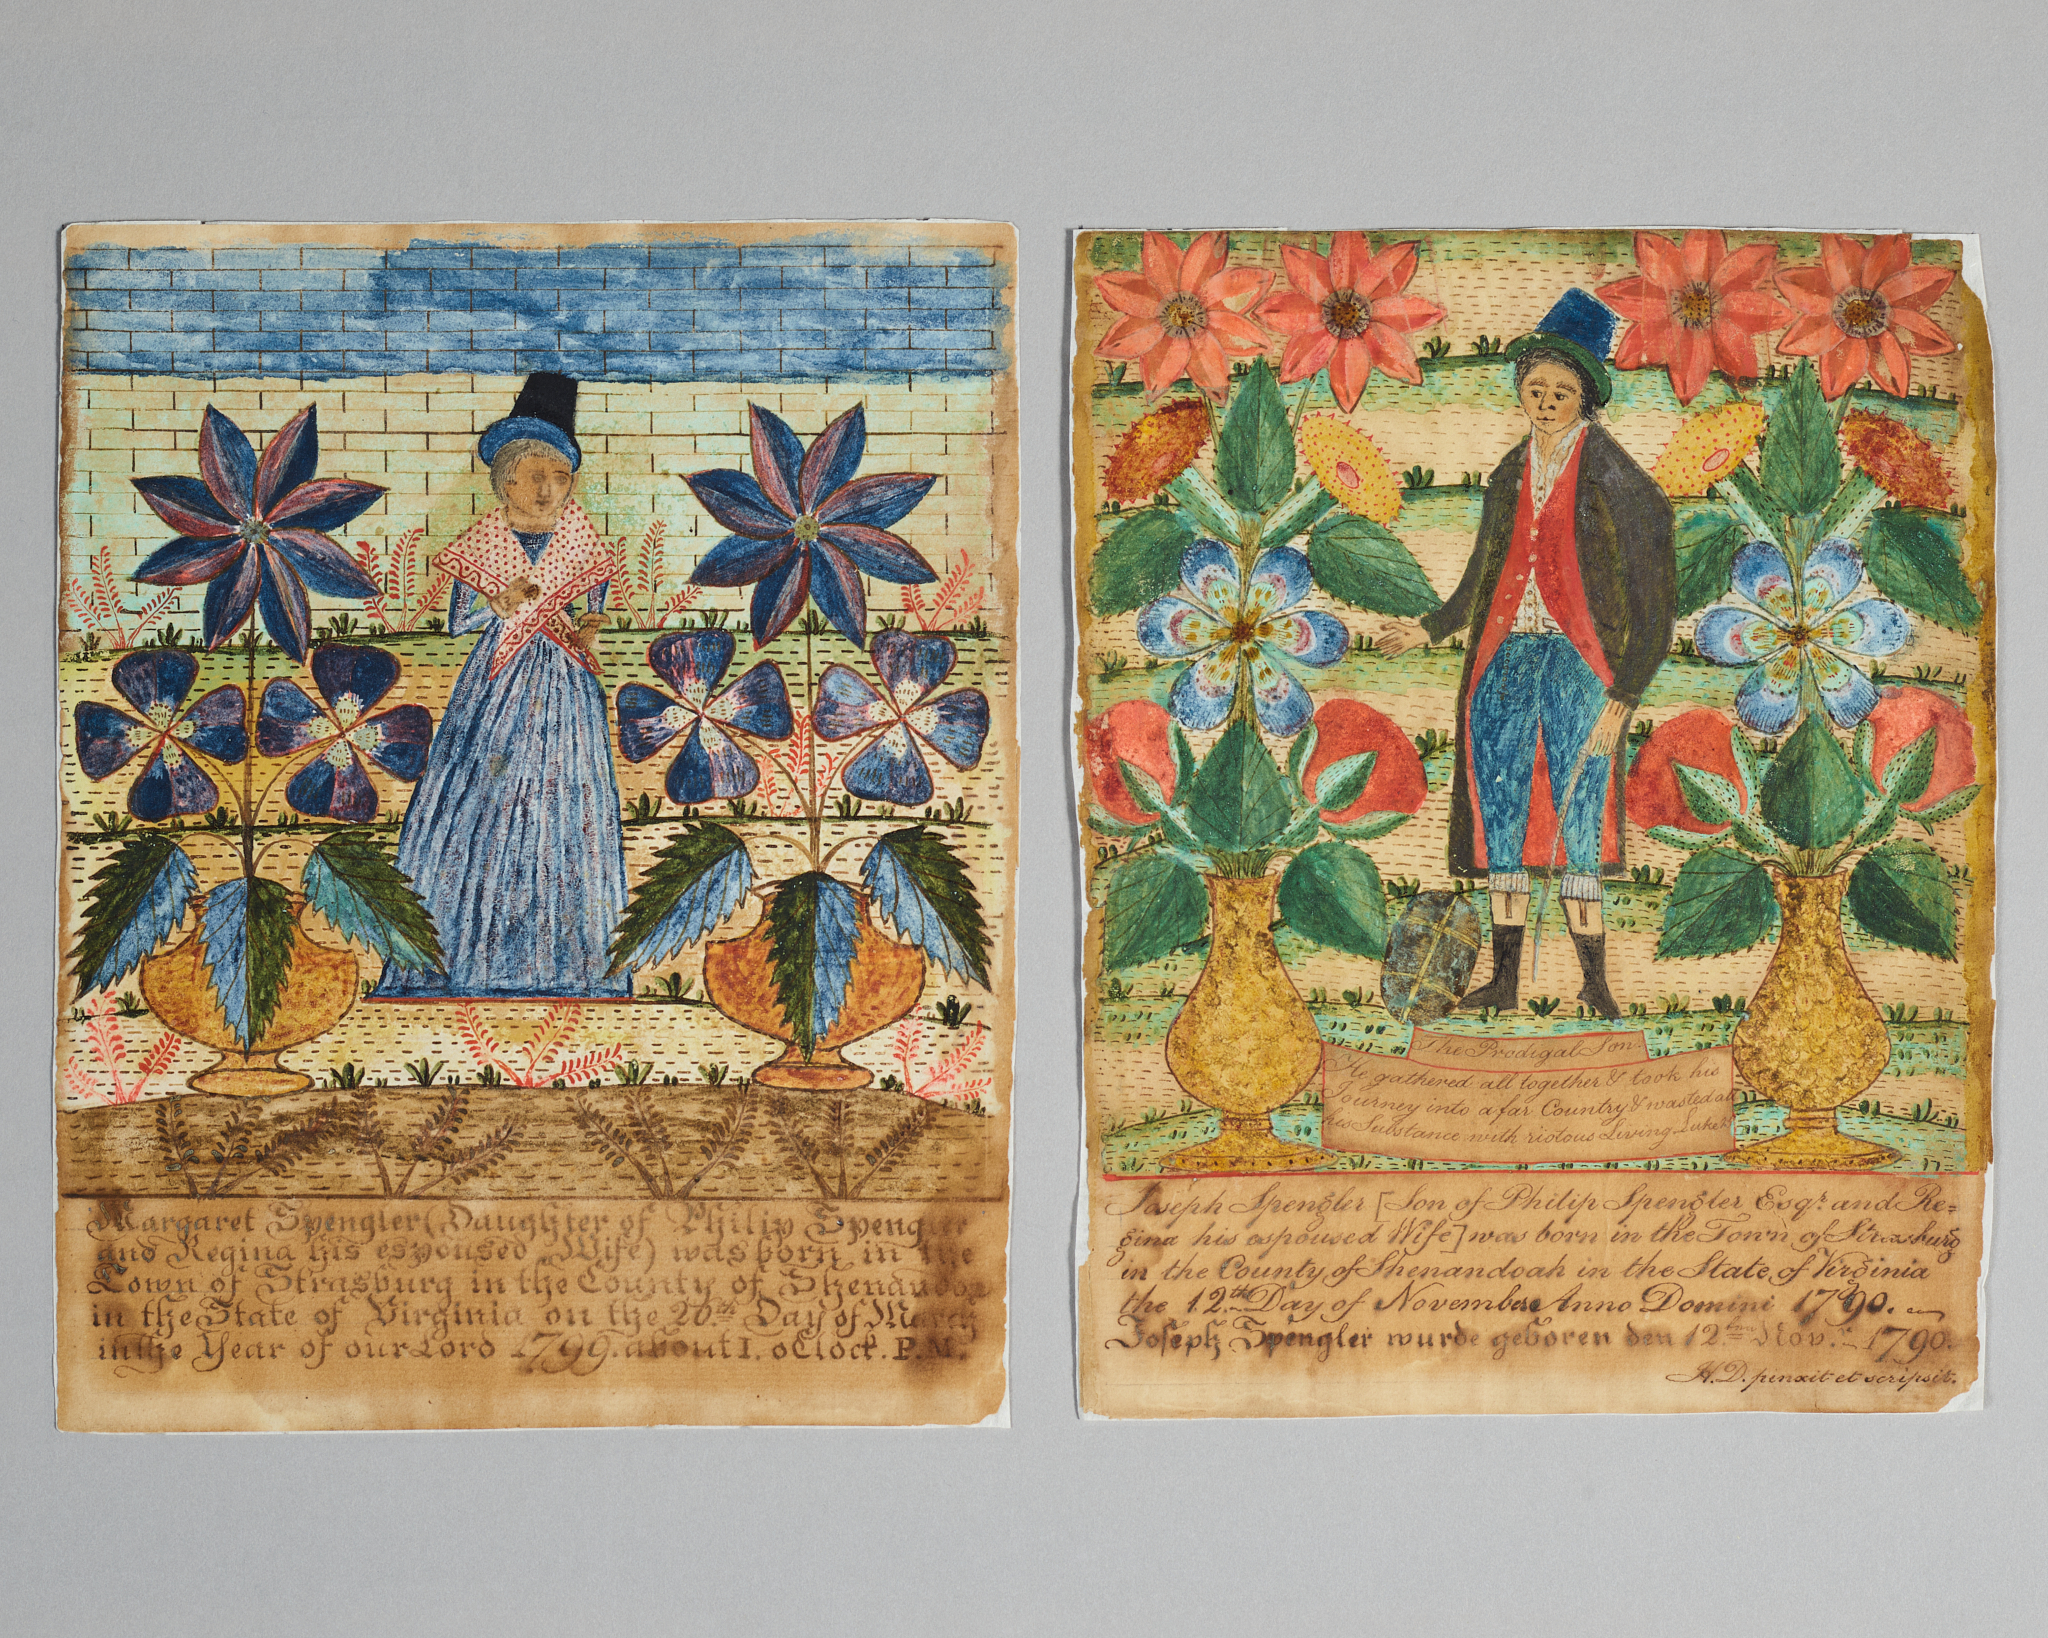 Margaret Spengler (Daughter of Philip Spengler
and Regina his espoused Wife) was born in the
Town of Strasburg in the County of Shenandoa
in the State of Virginia on the 26th Day of March
in the Year of our Lord 1799. about I. oClock. P.M.
The Prodigal Son.
He gathered all together & took his
Journey into a far Country & wasted all
his Substance with riotous Living Luke
Joseph Spengler [Son of Philip Spengler Esqr. and Re=
gina his espoused Wife] was born in the Town of Strasburg
in the County of Shenandoah in the State of Virginia
the 12th Day of November Anno Domini 1790.
Joseph Spengler wurde geboren den 12ten Nov.r 1790.
H. D. pinxit et scripsit.